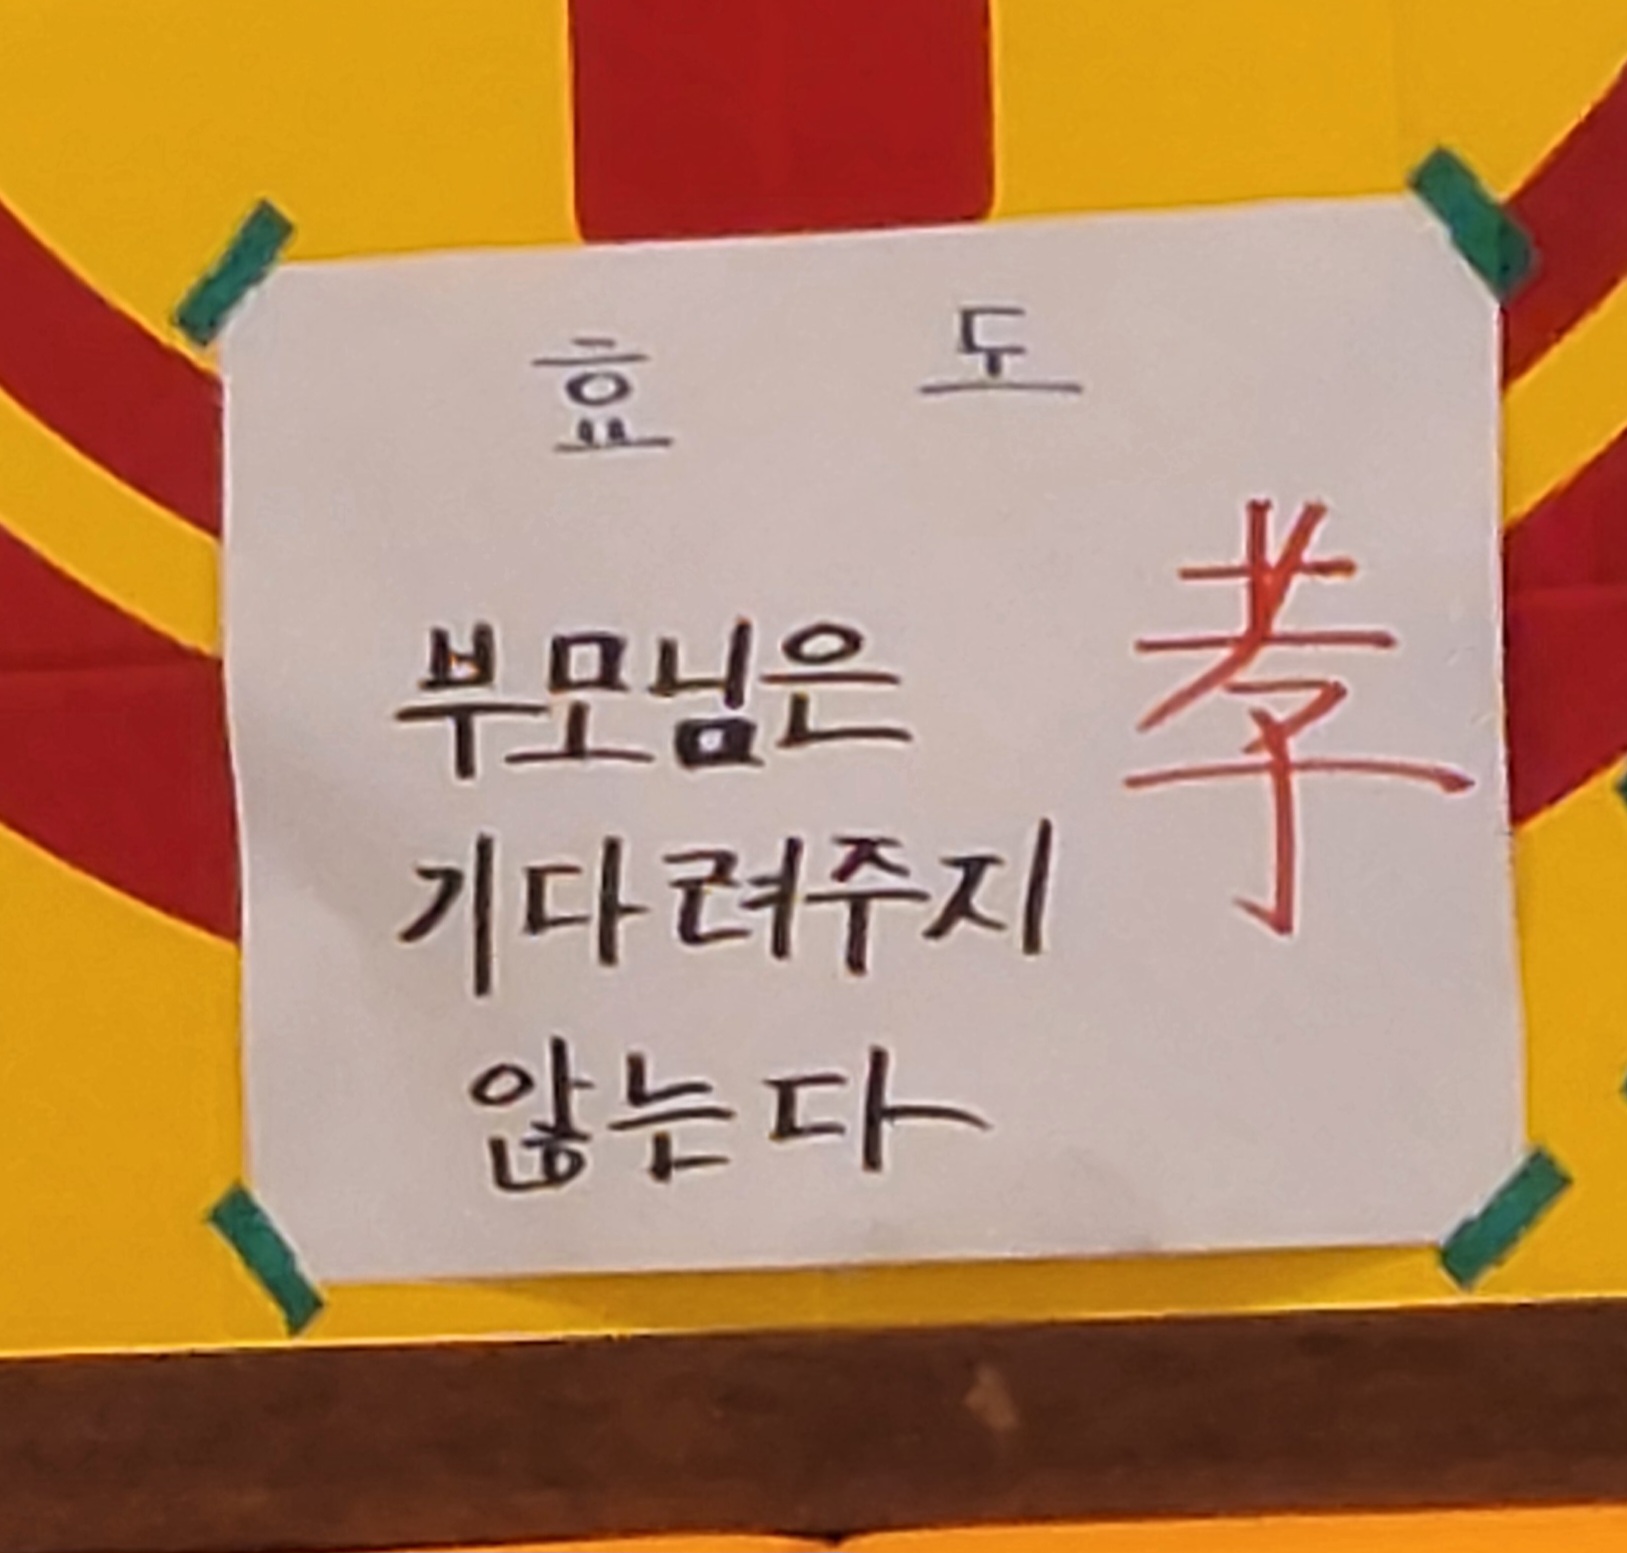 효 도
孝
부모님은
기다려주지
않는다